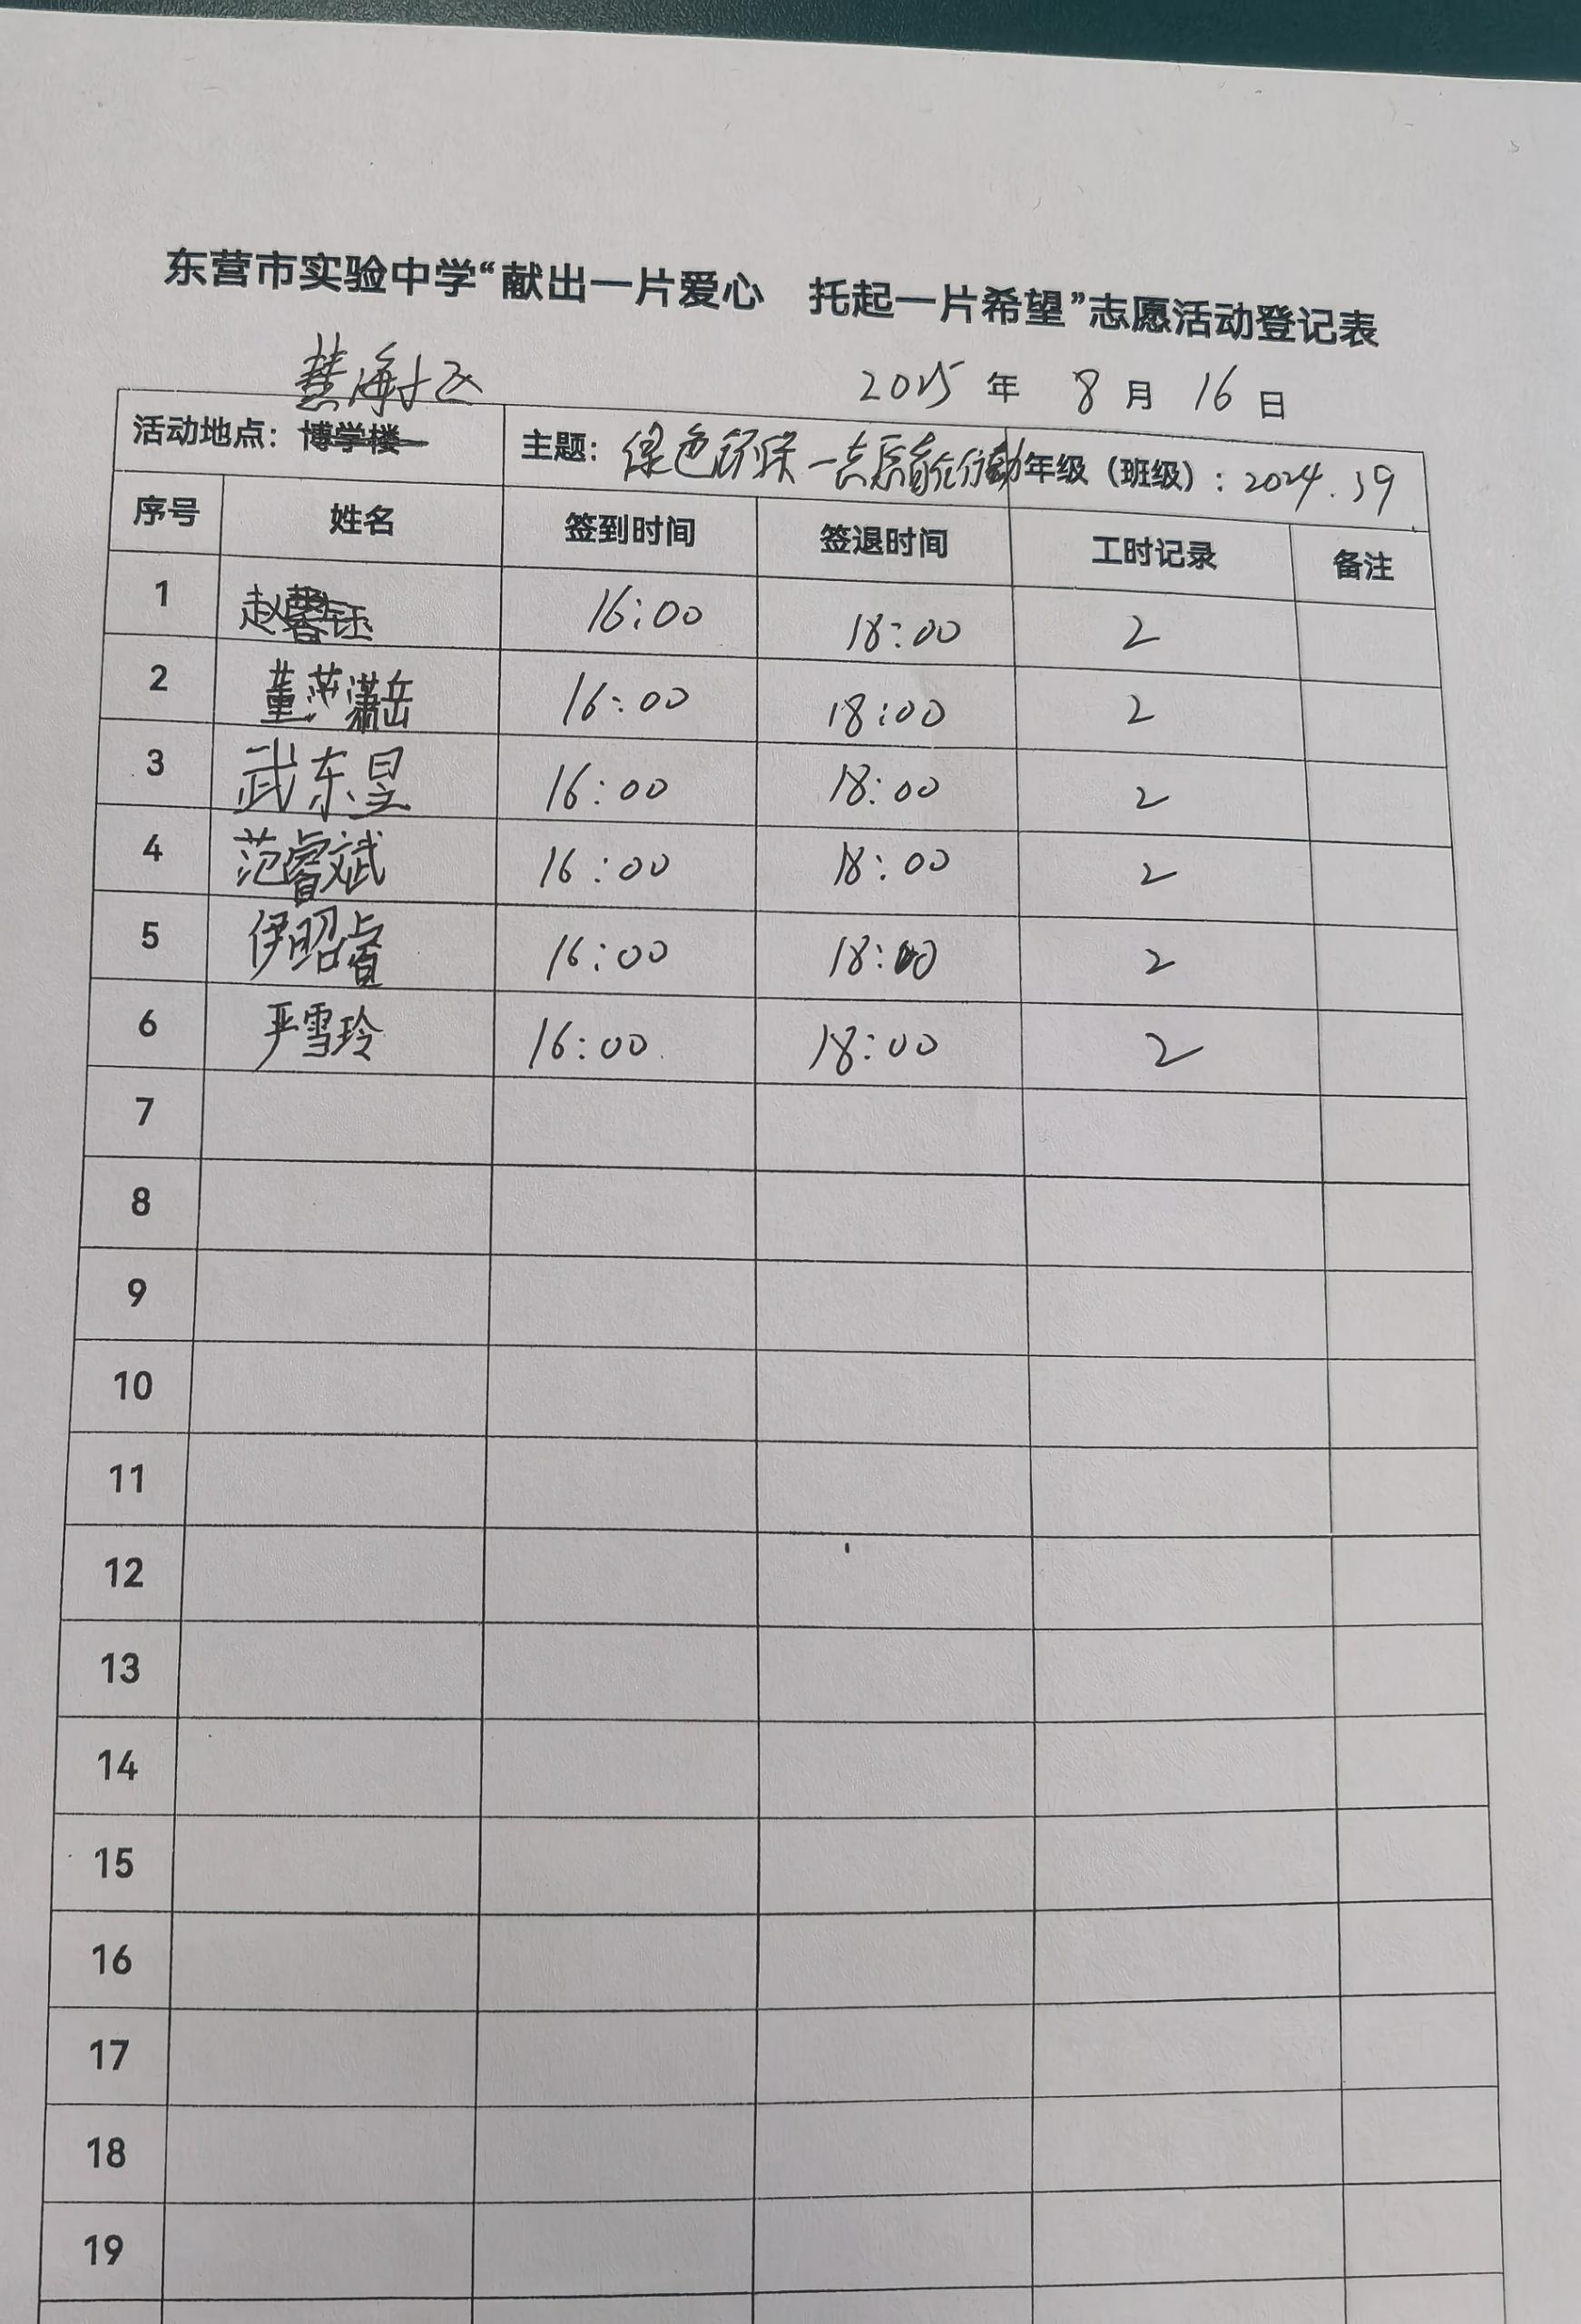 东营市实验中学“献出一片爱心 托起一片希望”志愿活动登记表
慧海小区
2025 年 8 月 16 日
活动地点：博学楼 主题：绿色环保 行动 年级（班级）：2024.39
序号 姓名 签到时间 签退时间 工时记录 备注
1 赵馨钰 16:00 18:00 2
2 董潇岳 16:00 18:00 2
3 武东昱 16:00 18:00 2
4 范睿斌 16:00 18:00 2
5 伊昭睿 16:00 18:00 2
6 严雪玲 16:00 18:00 2
7
8
9
10
11
12
13
14
15
16
17
18
19